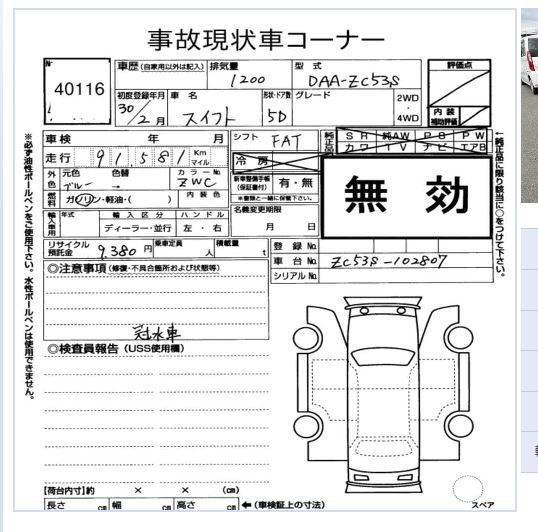 事故現状車コーナー
No 40116
車歴(自家用以外は記入) 排気量 1200 型式 DAA-ZC53S 評価点
初度登録年月 30/2月 車名 スイフト 形状・ドア数 5D グレード 2WD・4WD 内装補助評価
車検 年 月 シフト FAT 純正品 SR 純AW PS PW
カワ TV ナビ エアB
走行 91,581 Km マイル 冷房
外色 元色 ブルー 色替 → カラーNo. ZWC 新車整備手帳(保証書付) 有・無 無効
※書類と一緒に保管下さい。
燃料 ガソリン・軽油・( ) 内装色
名義変更期限 月 日
輸入車用 年式 輸入区分 ディーラー・並行 ハンドル 左・右
リサイクル預託金 9,380円 乗定員 人 積載量 t 登録No.
車台No. ZC53S-102807
シリアルNo.
◎注意事項(修復・不具合箇所および状態等)
冠水車
◎検査員報告(USS使用欄)
【荷台内寸】約 × × (cm)
長さ cm 幅 cm 高さ cm ←(車検証上の寸法)
スペア
※必ず油性ボールペンをご使用下さい。水性ボールペンは使用できません。
←純正品に限り該当に○をつけて下さい。